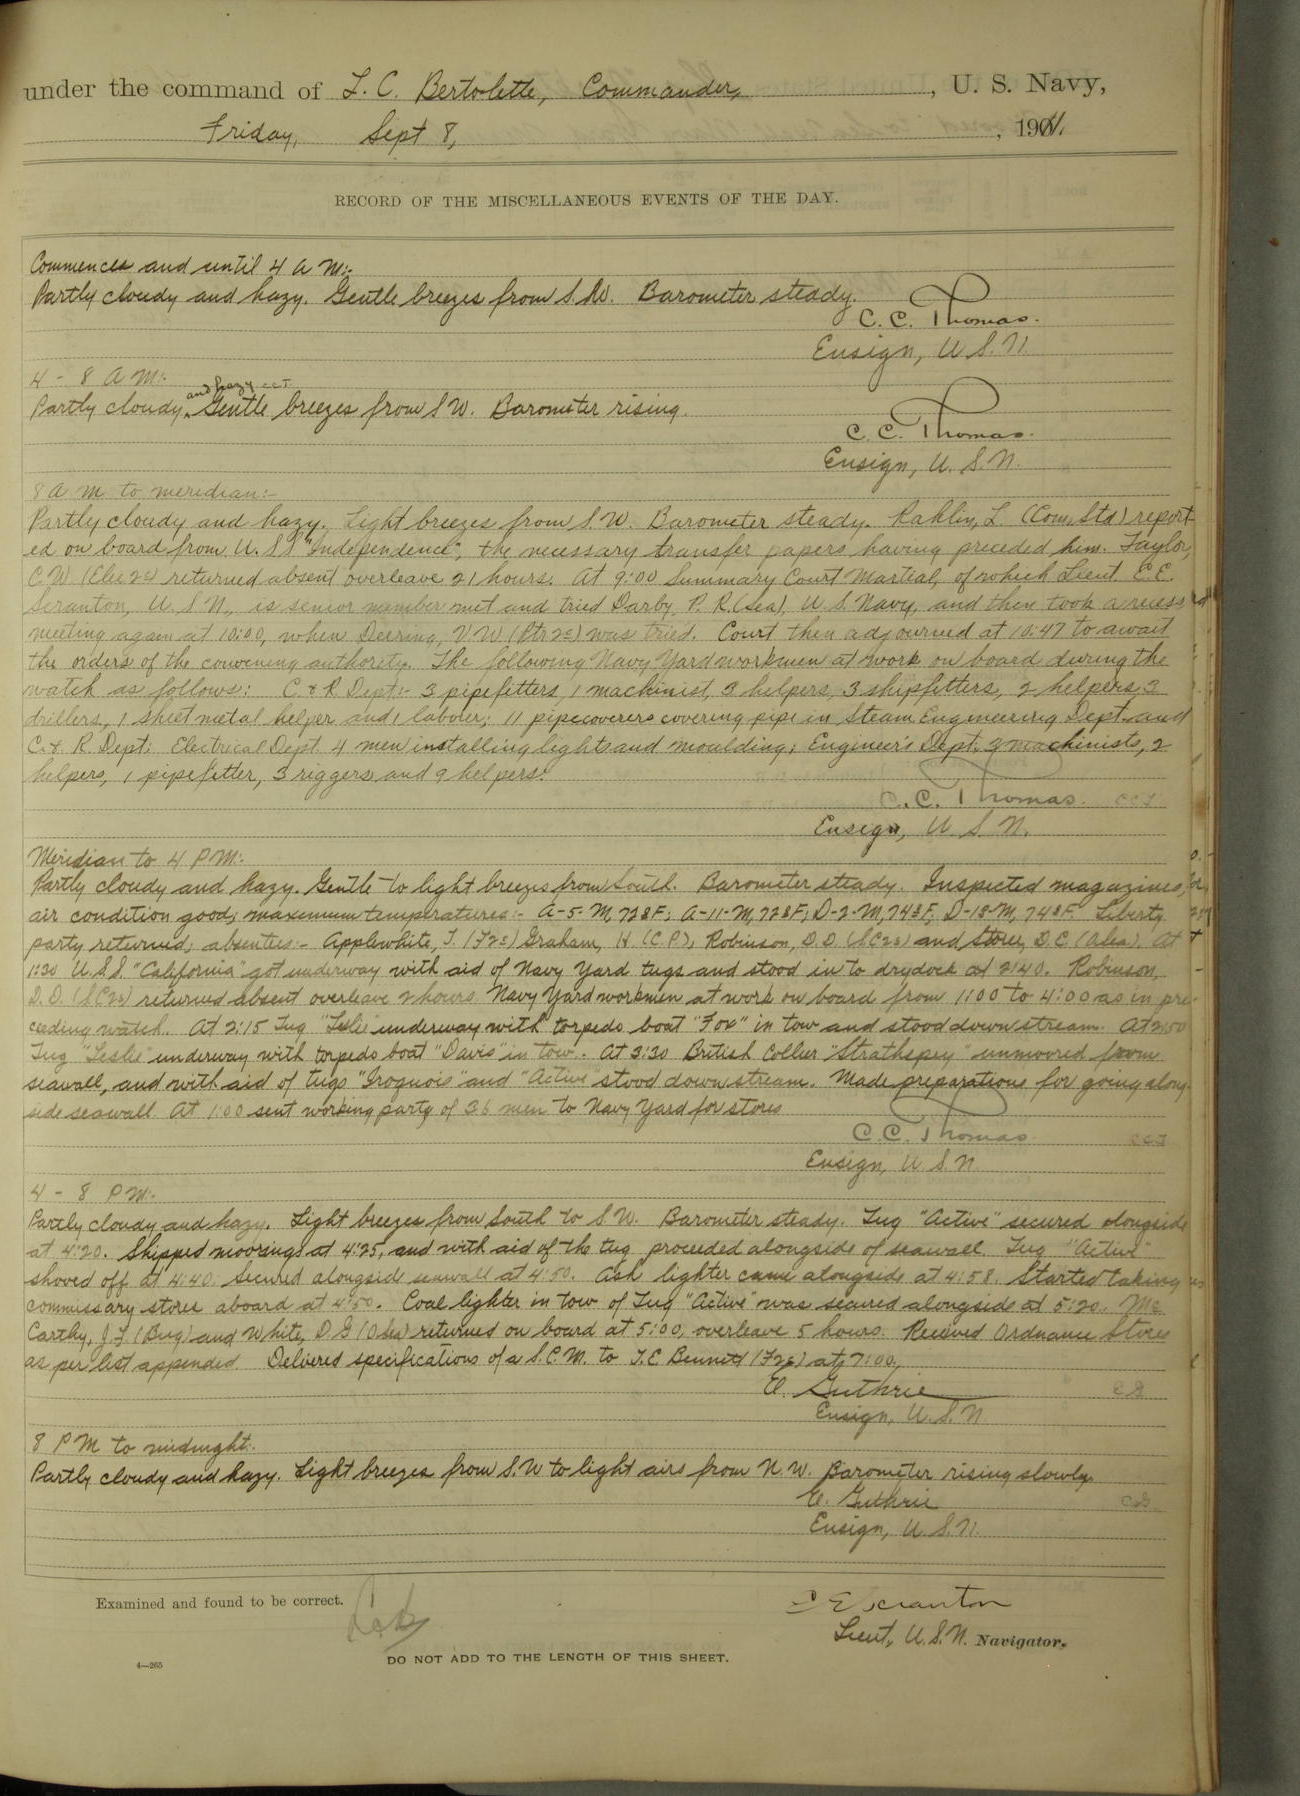 under the command of L. C. Bertolette, Commander, , U. S. Navy,
Friday, Sept 8, , 1911.
RECORD OF THE MISCELLANEOUS EVENTS OF THE DAY.
Commences and until 4 A M:-
Partly cloudy and hazy. Gentle breezes from S.W. Barometer steady.
C. C. Thomas.
Ensign, U.S.N.
4 - 8 A M:-
and hazy CCT
Partly cloudy. Gentle breezes from S W. Barometer rising.
C. C. Thomas.
Ensign, U.S.N.
8 A M to meridian:-
Partly cloudy and hazy. Light breezes from S.W. Barometer steady. Rahlin, L. (Com. Std) report-
ed on board from U.S.S "Independence", the necessary transfer papers having preceded him. Taylor,
C.W. (Elec 2c) returned absent overleave 21 hours. At 9:00 Summary Court Martial, of which Lieut. C.E.
Scranton, U.S.N., is senior member met and tried Darby, P. R. (Sea), U.S. Navy, and then took a recess
meeting again at 10:00, when Deering, V W (Ptr 2c) was tried. Court then adjourned at 10:47 to await
the orders of the convening authority. The following Navy Yard workmen at work on board during the
watch as follows: C. & R. Dept:- 3 pipefitters, 1 machinist, 3 helpers, 3 shipfitters, 2 helpers, 3
drillers, 1 sheet metal helper and 1 laborer; 11 pipecoverers covering pipe in Steam Engineering Dept. and
C. & R. Dept: Electrical Dept. 4 men installing lights and moulding; Engineer's Dept. 3 machinists, 2
helpers, 1 pipefitter, 3 riggers and 9 helpers.
C. C. Thomas. CCT
Ensign, U S N.
Meridian to 4 P M:-
Partly cloudy and hazy. Gentle to light breezes from South. Barometer steady. Inspected magazines,
air condition good; maximum temperatures:- A-5-M, 72°F; A-11-M, 72°F; D-2-M, 74°F, D-18-M, 74°F. Liberty
party returned; absentees:- Applewhite, J. (F2c) Graham, H (C.P.), Robinson, D.D. (SC2c) and Stone, D.C. At
1:30 U.S.S. "California" got underway with aid of Navy Yard tugs and stood in to drydock at 2:40. Robinson,
D.D. (SC2c) returned absent overleave 2 hours. Navy Yard workmen at work on board from 1:00 to 4:00 as in pre-
ceeding watch. At 2:15 Tug "Leslie" underway with torpedo boat "Fox" in tow and stood down stream. At 2:50
Tug "Leslie" underway with torpedo boat "Davis" in tow. At 3:30 British Collier "Strathspey" unmoored from
seawall, and with aid of tugs "Iroquois" and "Active" stood down stream. Made preparations for going along-
side seawall. At 1:00 sent working party of 36 men to Navy Yard for stores
C. C. Thomas. CCT
Ensign, U.S.N.
4 - 8 P M:-
Partly cloudy and hazy. Light breezes from South to S.W. Barometer steady. Tug "Active" secured alongside
at 4:20. Shipped moorings at 4:25, and with aid of the tug proceeded alongside of seawall. Tug "Active"
shoved off at 4:40. Secured alongside seawall at 4:50. Ash lighter came alongside at 4:58. Started taking
commissary stores aboard at 4:50. Coal lighter in tow of Tug "Active" was secured alongside at 5:20. Mc
Carthy, J.F. (Bug) and White, D.G. returned on board at 5:00, overleave 5 hours. Received Ordnance Stores
as per list appended. Delivered specifications of a S.C.M. to T.E Bennett (F2c) at 7:00.
E. Guthrie EG
Ensign, U.S.N.
8 P M to midnight:-
Partly cloudy and hazy. Light breezes from S.W to light airs from N.W. Barometer rising slowly.
E. Guthrie EG
Ensign, U.S.N.
Examined and found to be correct.
C E Scranton
Lieut, U.S.N. Navigator.
DO NOT ADD TO THE LENGTH OF THIS SHEET.
4—265